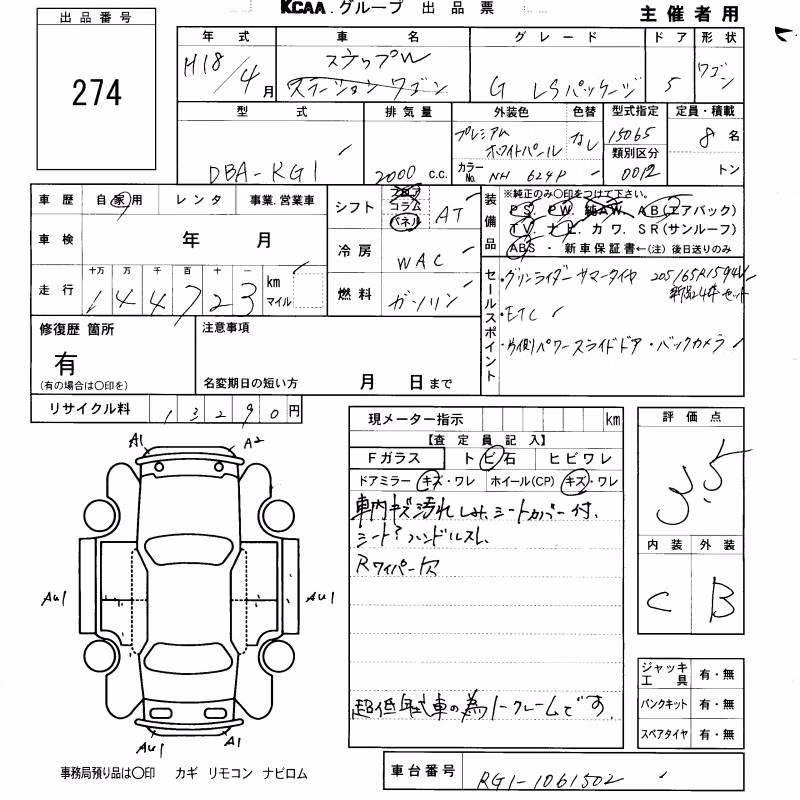 KCAA.グループ 出品票
主催者用
出品番号
274
年式 車名 グレード ドア 形状
H18/4月 ステップW G LSパッケージ 5 ワゴン
ステーションワゴン
型式 排気量 外装色 色替 型式指定 定員・積載
プレミアム なし 15065 8名
ホワイトパール 類別区分
DBA-RG1 2000 c.c. カラーNo. NH 624P 0012 トン
車歴 自家用 レンタ 事業.営業車
シフト フロア コラム パネル AT
装備品 ※純正のみ○印をつけて下さい。
PS. PW. 純AW. AB(エアバック)
TV. ナビ. カワ. SR(サンルーフ)
ABS・新車保証書←(注)後日送りのみ
車検 年 月
冷房 WAC
走行 十万 万 千 百 十 一 km マイル
144723
燃料 ガソリン
セールスポイント
・グリンライダーサマータイヤ 205/65R15 94V
新品4本セット
・ETC
・片側パワースライドドア・バックカメラ
修復歴 箇所
有
(有の場合は○印を)
注意事項
名変期日の短い方 月 日まで
リサイクル料 13290円
現メーター指示 km
【査定員記入】
Fガラス トビ石 ヒビワレ
ドアミラー キズ・ワレ ホイール(CP) キズ・ワレ
車内キズ汚れしみ、シートカバー付、
シート?ハンドルスレ、
Rワイパー欠
超低年式車の為ノークレームです。
評価点
3.5
内装 外装
C B
A1 A2
AU1 AU1
AU1 A1
ジャッキ工具 有・無
パンクキット 有・無
スペアタイヤ 有・無
事務局預り品は○印 カギ リモコン ナビロム
車台番号 RG1-1061502